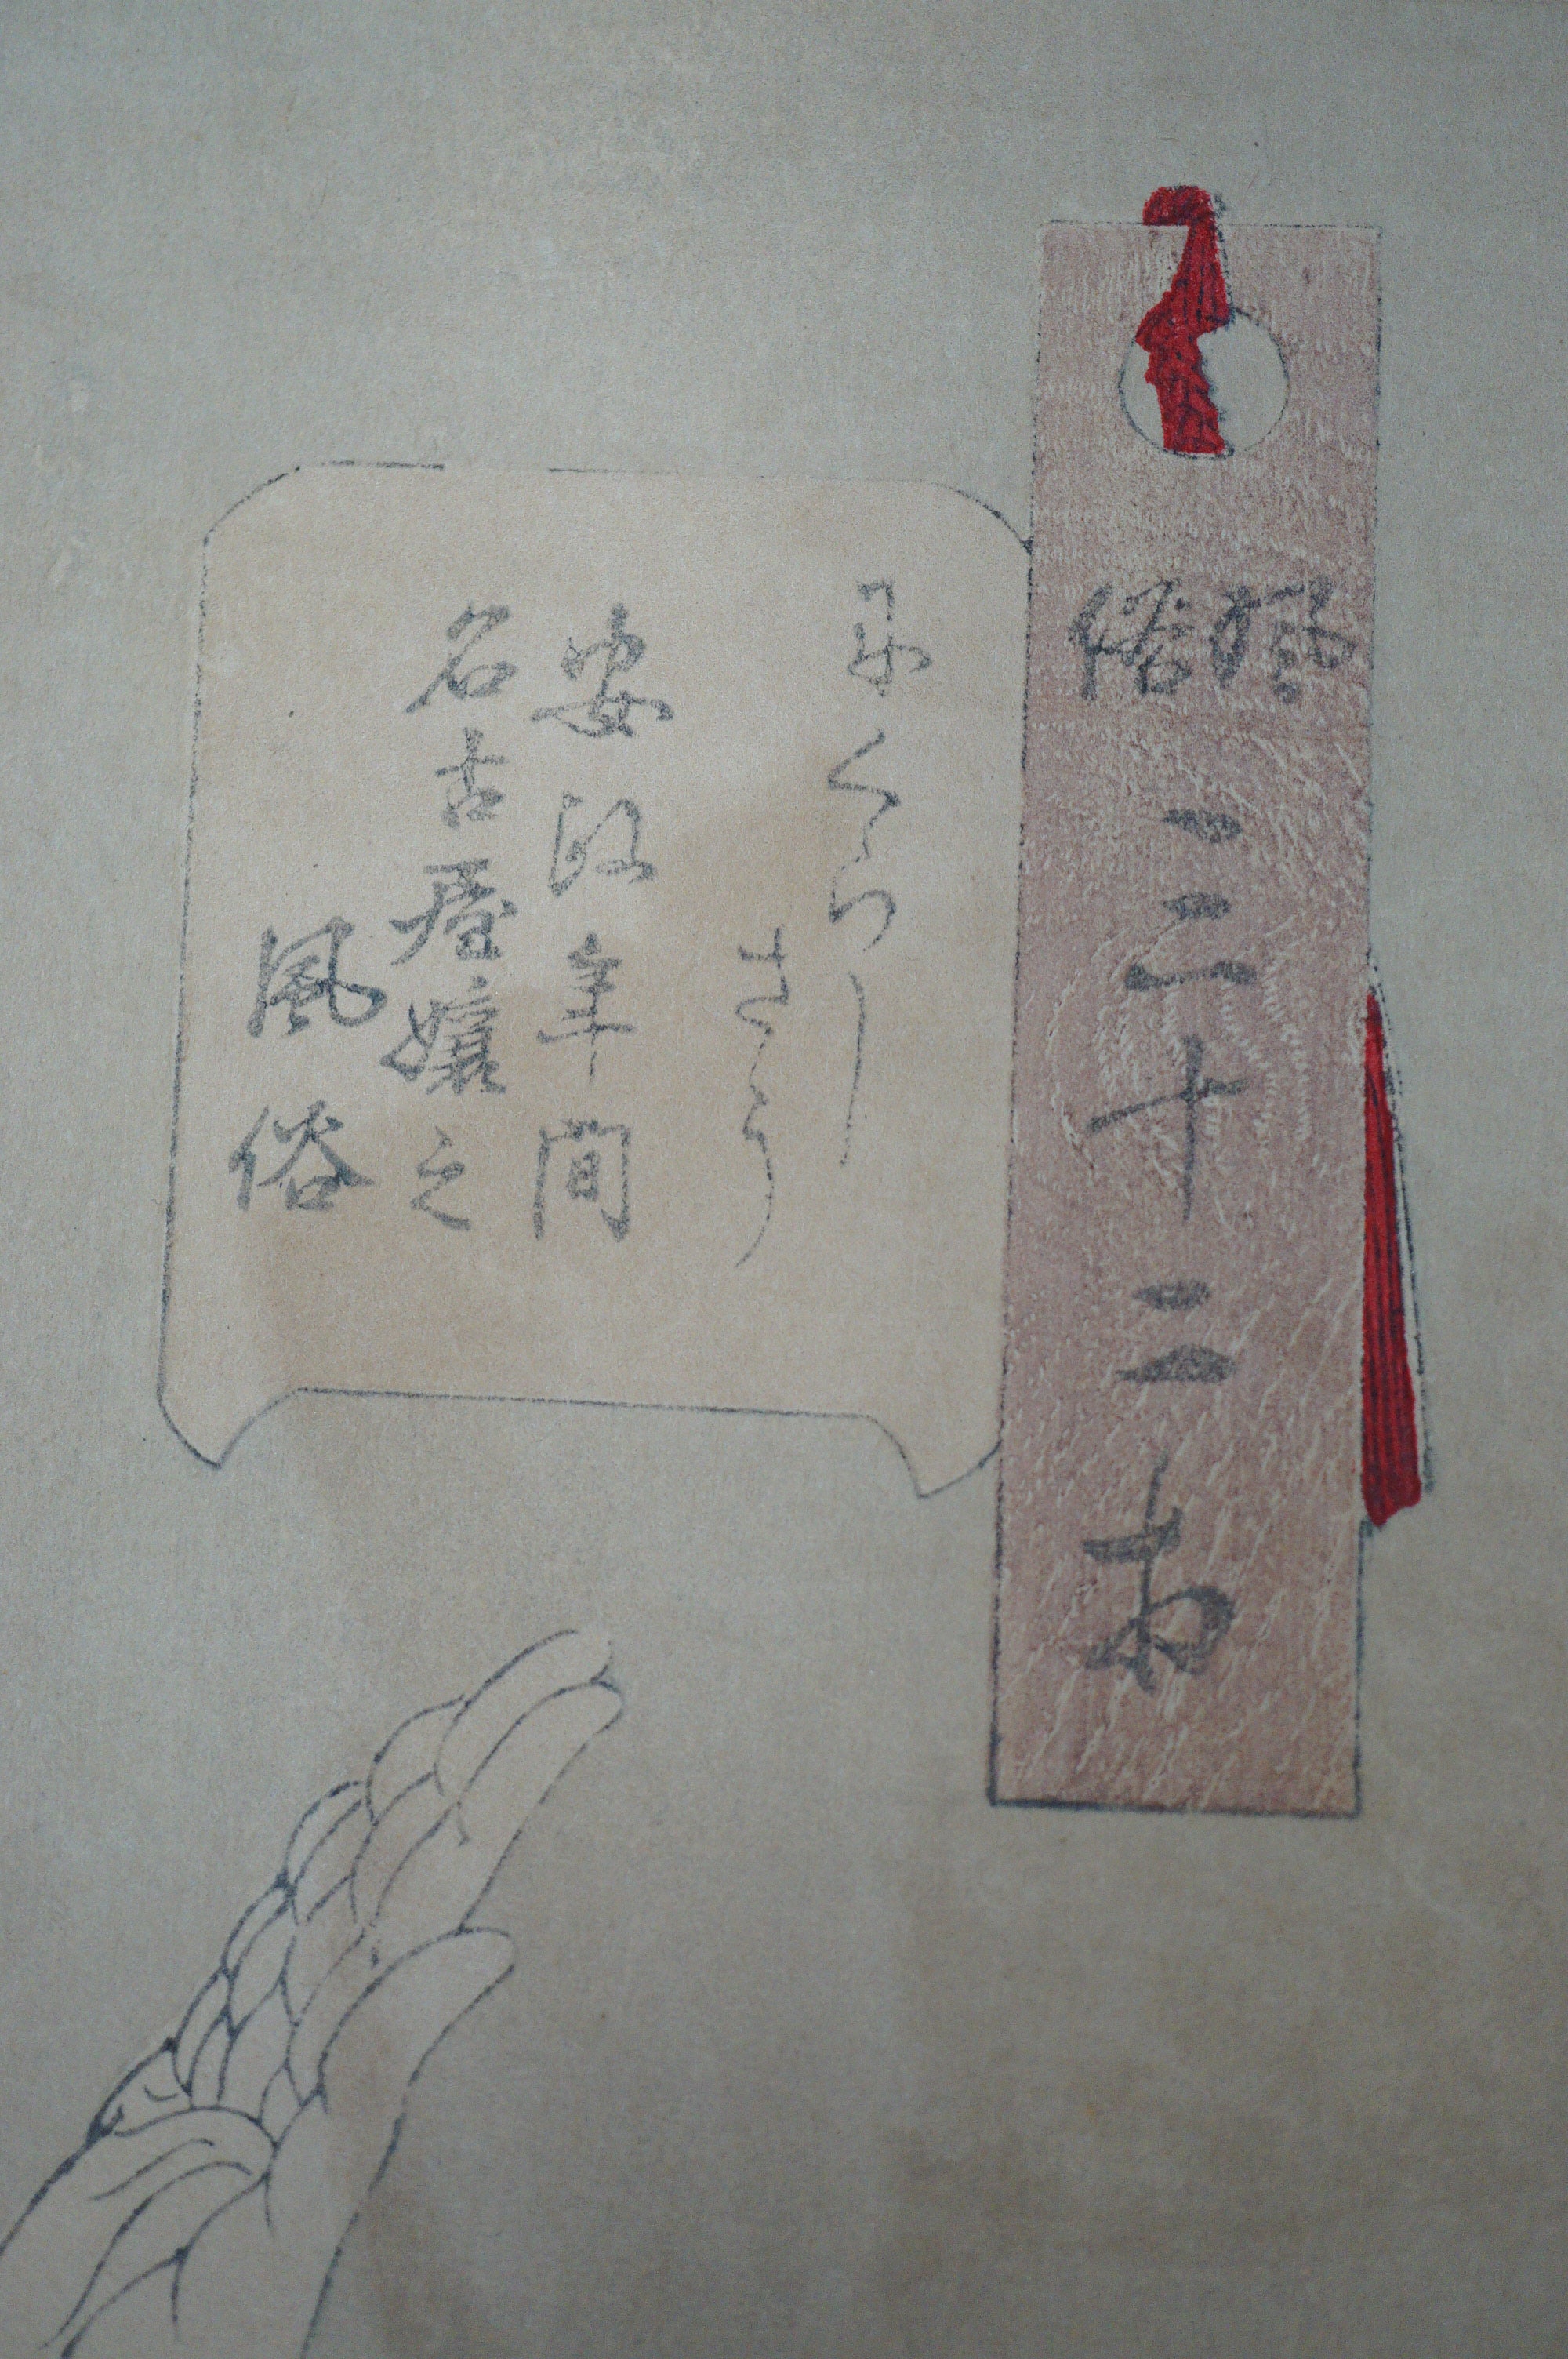 風俗三十二相
めくらしさう
安政年間
名古屋嬢之
風俗